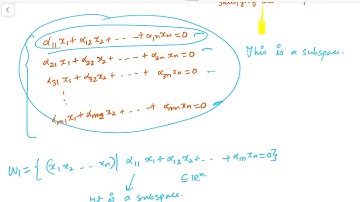 α11 x1 + α12 x2 + - - - + α1n xn = 0
α21 x1 + α22 x2 + - - - - + α2n xn = 0
α31 x1 + α32 x2 + - - - + α3n xn = 0
⋮
αm1 x1 + αm2 x2 + - - - + αmn xn = 0
This is a subspace.
W1 = { (x1 x2 - - - xn) | α11 x1 + α12 x2 + - - + α1n xn = 0 }
⊆ ℝn
It is a subspace.